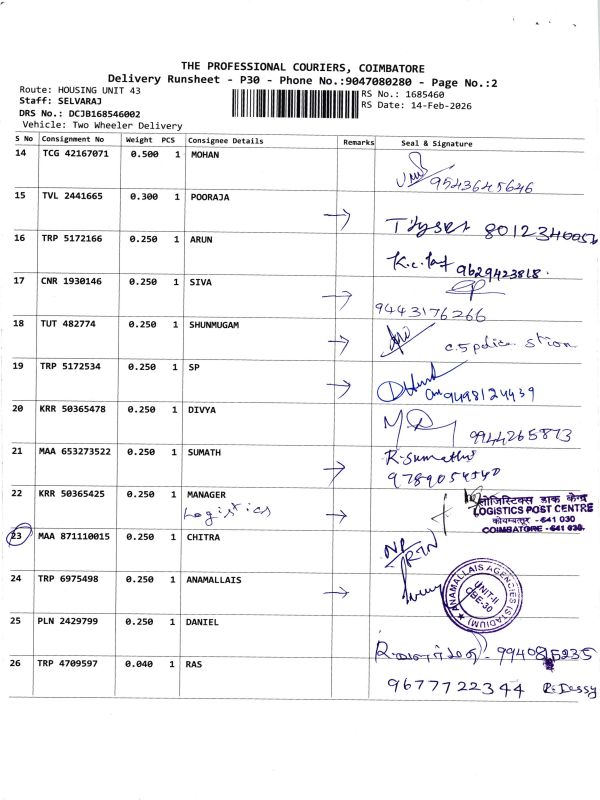 THE PROFESSIONAL COURIERS, COIMBATORE
Delivery Runsheet - P30 - Phone No.:9047080280 - Page No.:2
Route: HOUSING UNIT 43
RS No.: 1685460
Staff: SELVARAJ
RS Date: 14-Feb-2026
DRS No.: DCJB168546002
Vehicle: Two Wheeler Delivery
S No Consignment No Weight PCS Consignee Details Remarks Seal & Signature
14 TCG 42167071 0.500 1 MOHAN
9543645646
15 TVL 2441665 0.300 1 POORAJA
→ 8012340056
16 TRP 5172166 0.250 1 ARUN
9629423818.
17 CNR 1930146 0.250 1 SIVA
→ 9443176266
18 TUT 482774 0.250 1 SHUNMUGAM
→ c.5 police stion
19 TRP 5172534 0.250 1 SP
→ 9498124439
20 KRR 50365478 0.250 1 DIVYA
9944265873
21 MAA 653273522 0.250 1 SUMATH
→ R.Sumathi
9789054540
22 KRR 50365425 0.250 1 MANAGER
Logistics →
लोजिस्टिक्स डाक केन्द्र
LOGISTICS POST CENTRE
कोयम्बत्तूर - 641 030
COIMBATORE - 641 030.
23 MAA 871110015 0.250 1 CHITRA
NP/RTN
24 TRP 6975498 0.250 1 ANAMALLAIS
→ ANAMALLAIS AGENCIES (STADIUM)
UNIT-II
CBE-30
25 PLN 2429799 0.250 1 DANIEL
9940815235
26 TRP 4709597 0.040 1 RAS
9677722344